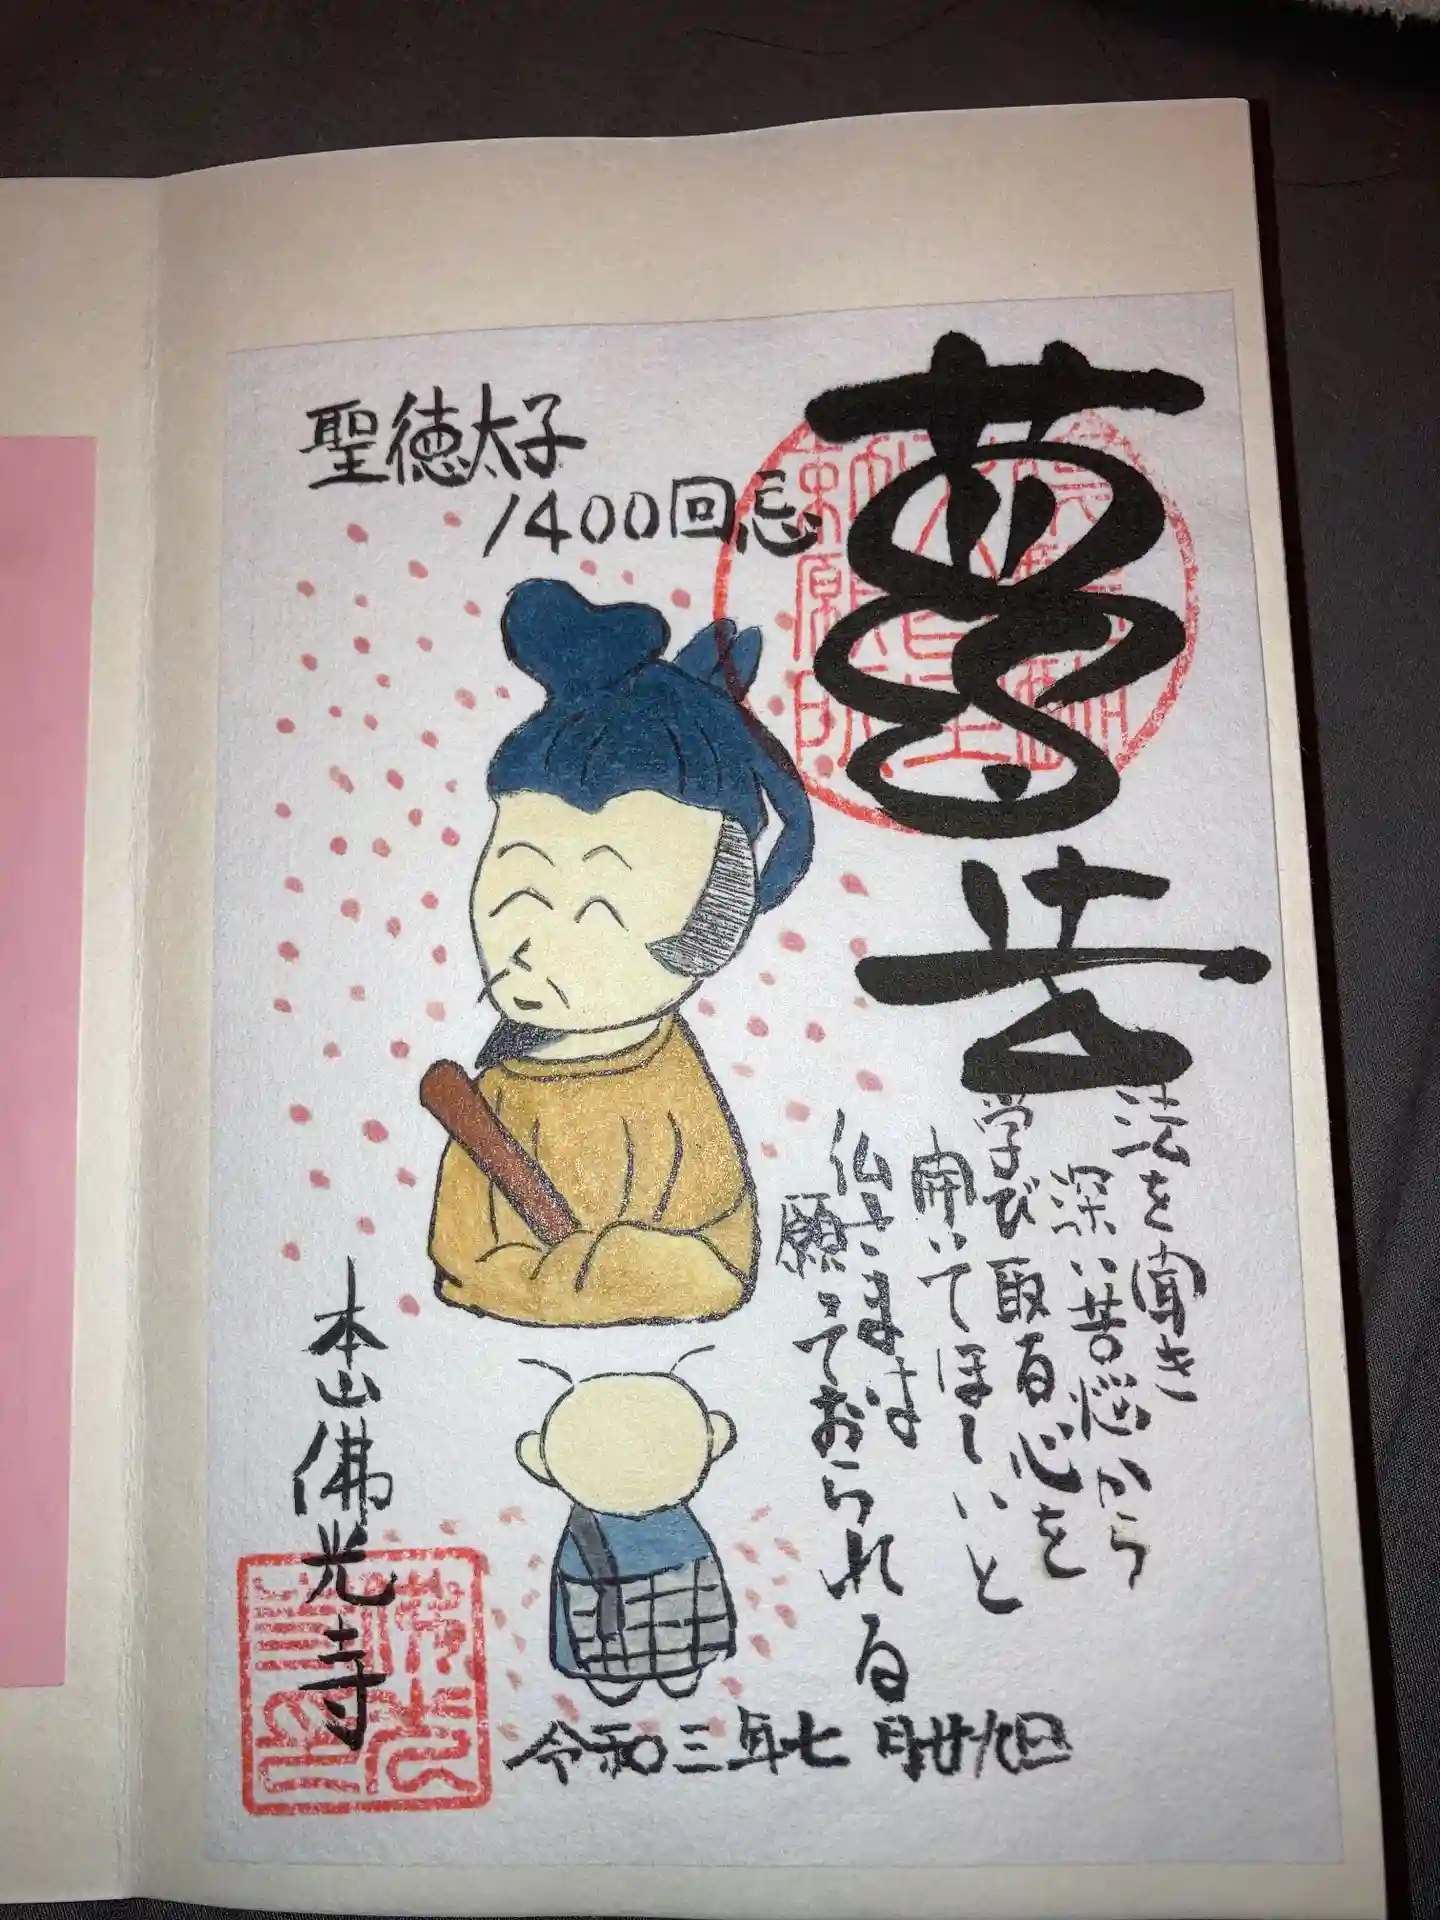 聖徳太子
1400回忌
法を聞き
深い苦悩から
学び取る心を
開いてほしいと
仏さまは
願っておられる
本山佛光寺
令和三年七月廿九日